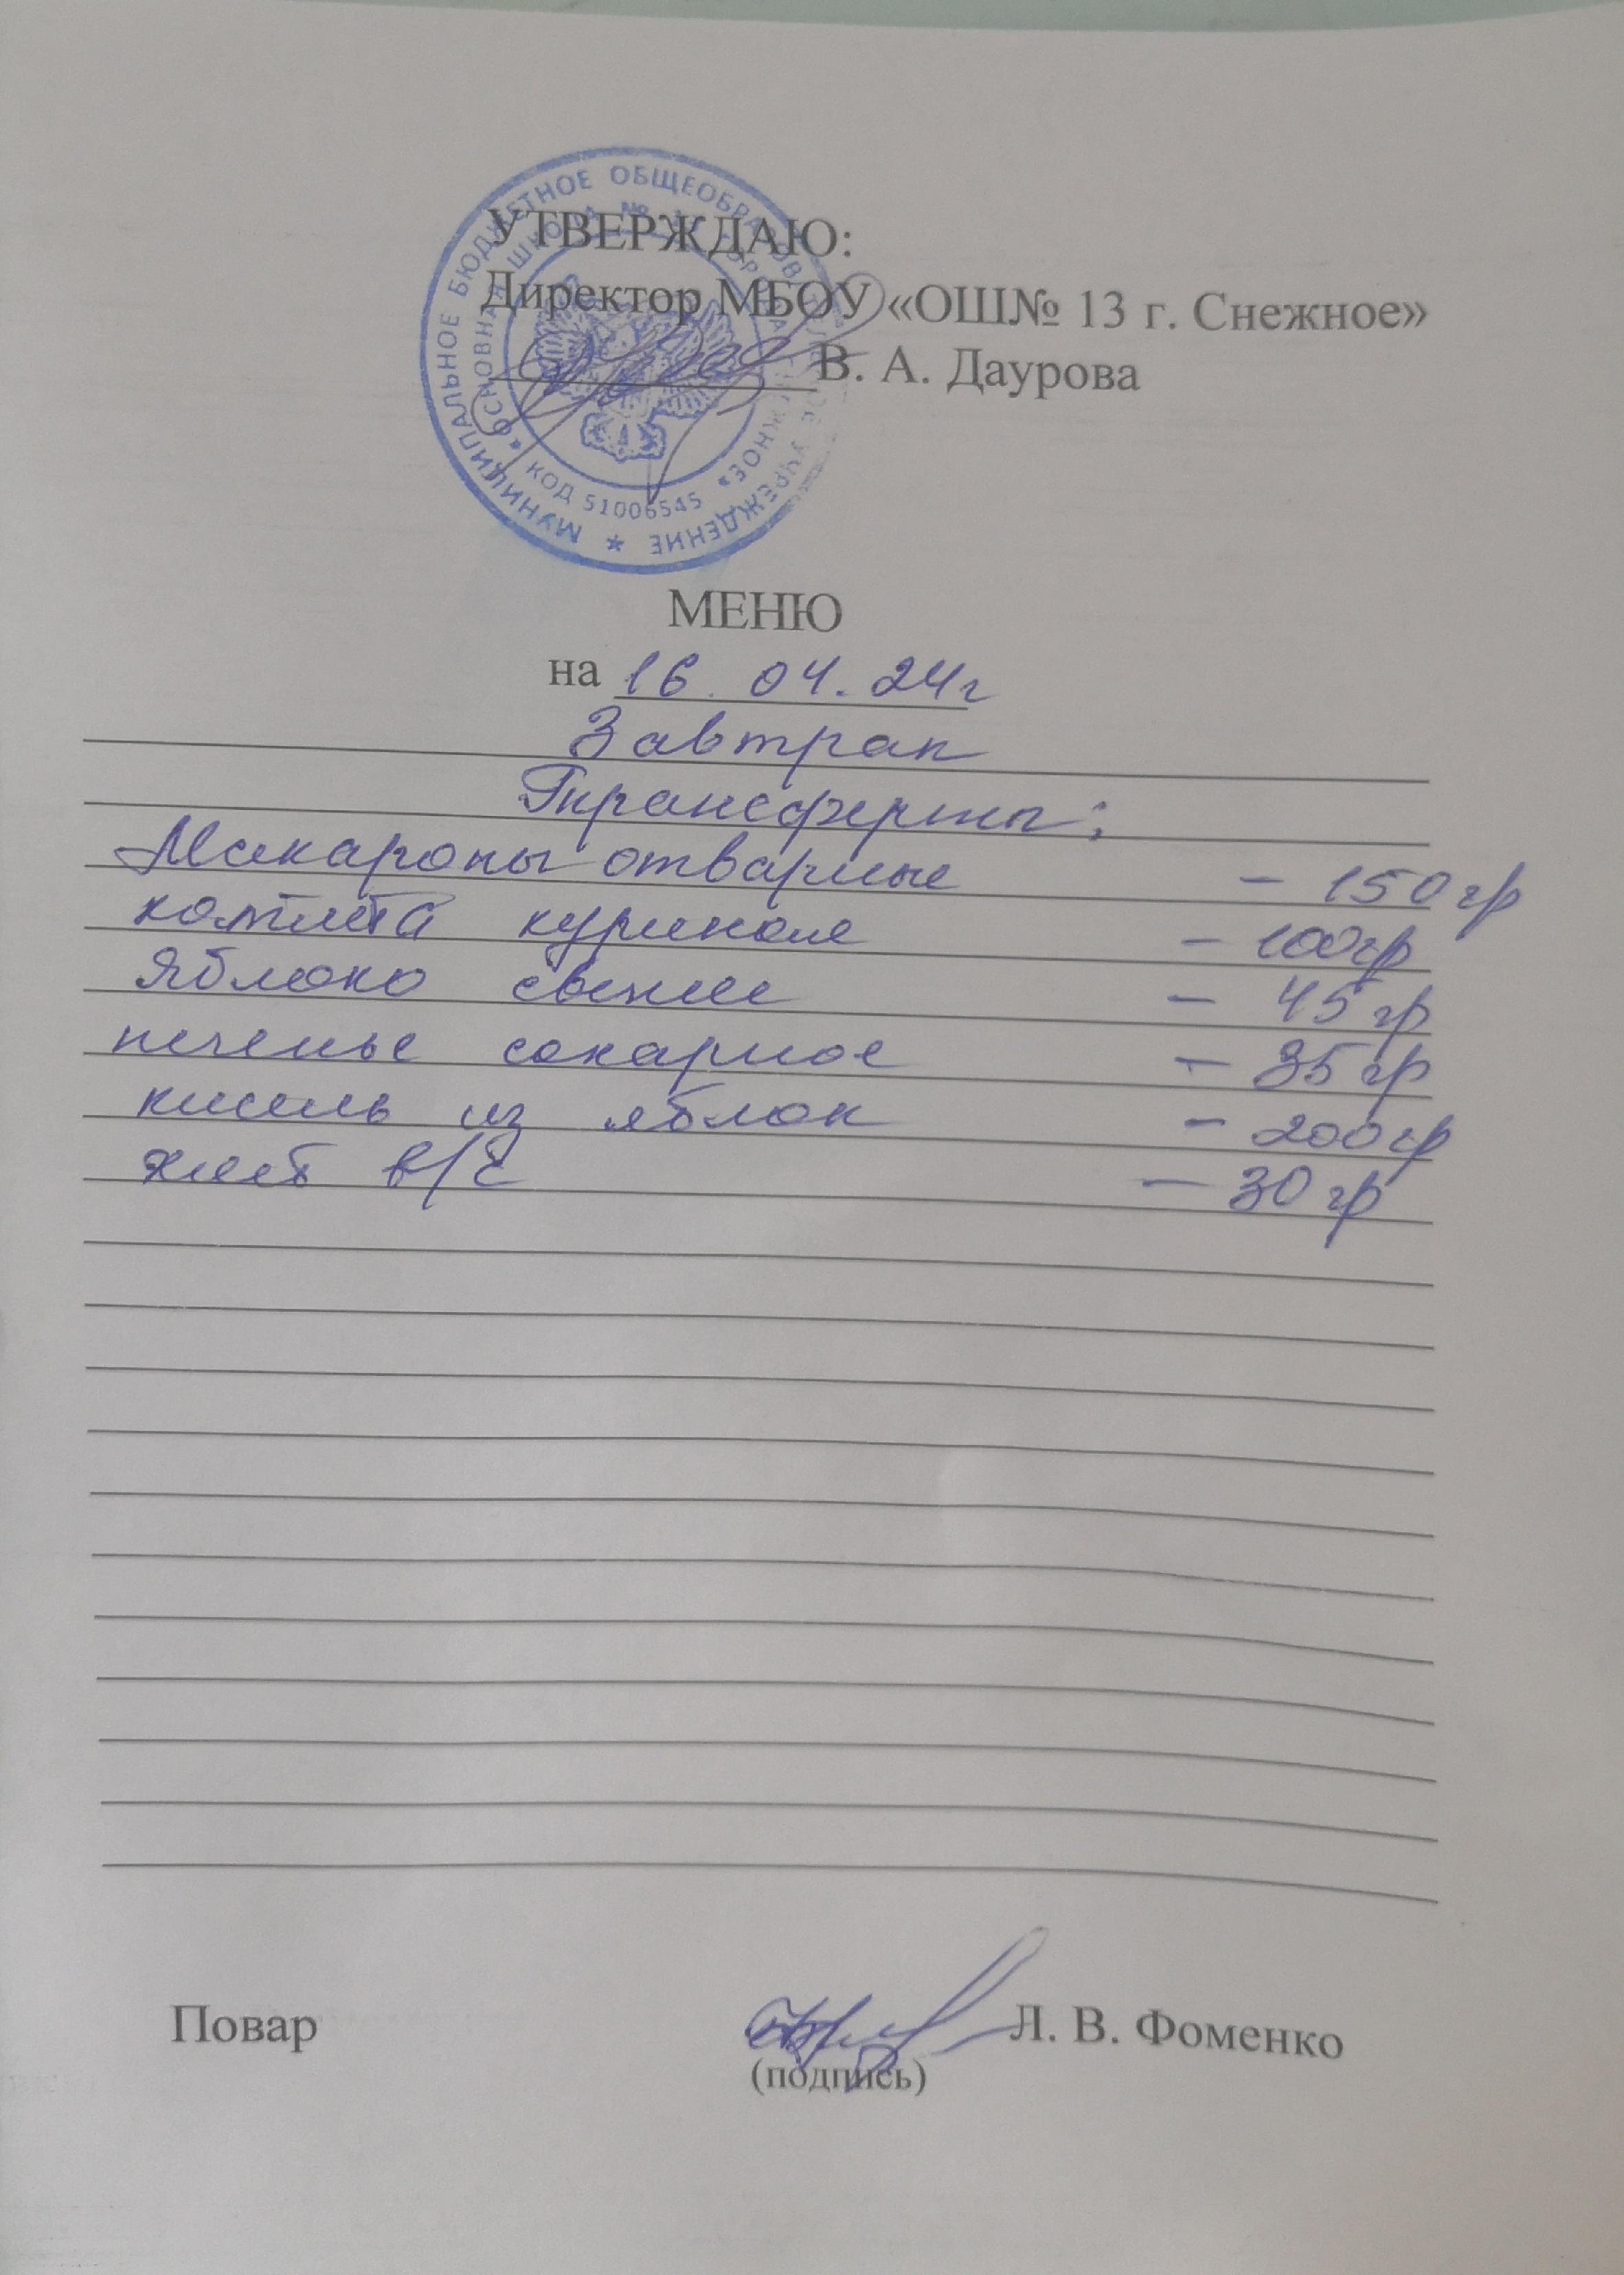 УТВЕРЖДАЮ:
Директор МБОУ «ОШ№ 13 г. Снежное»
В. А. Даурова
МУНИЦИПАЛЬНОЕ БЮДЖЕТНОЕ ОБЩЕОБРАЗОВАТЕЛЬНОЕ УЧРЕЖДЕНИЕ *
«ОСНОВНАЯ ШКОЛА №
КОД 51006545
МЕНЮ
на 16. 04. 24г
Завтрак
Трансферты:
Макароны отварные - 150 гр
котлета куриная - 100гр
Яблоко свежее - 45 гр
печенье сахарное - 35 гр
кисель из яблок - 200 гр
хлеб в/с - 30 гр
Повар Л. В. Фоменко
(подпись)